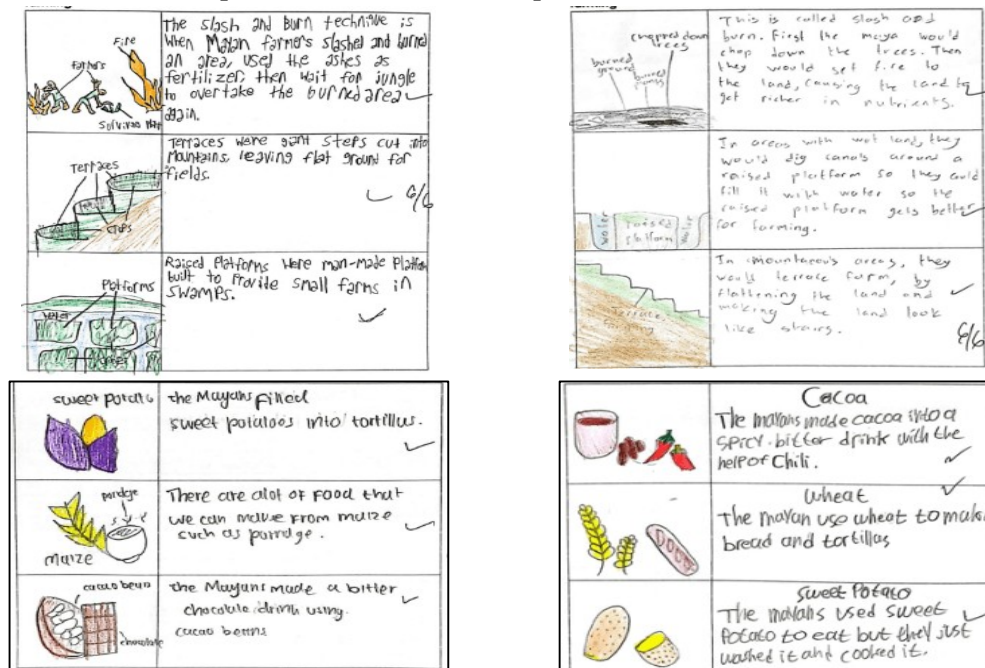 Fire
farmers
Surviving Plant
The slash and Burn technique is
when Mayan farmers slashed and burned
an area, used the ashes as
fertilizer, then wait for jungle
to overtake the burned area
again.
Terraces
crops
Terraces were giant steps cut into
Mountains, leaving flat ground for
fields.
6/6
Platforms
water
Raised Platforms were man-made Platform
built to Provide small farms in
swamps.
chopped down
trees
burned
ground
burned
This is called slash and
burn. First the maya would
chop down the trees. Then
they would set fire to
the land, causing the land to
get richer in nutrients.
water
raised
platform
water
In areas with wet land, they
would dig canals around a
raised platform so they could
fill it with water so the
raised platform gets better
for farming.
Terrace
farming
In mountainous areas, they
would terrace farm, by
flattening the land and
making the land look
like stairs.
6/6
sweet potato
the Mayans filled
sweet potatoos into tortillas.
poridge
maize
There are alot of food that
we can make from maize
such as porridge.
cacao beans
chocolate
the Mayans made a bitter
chocolate drink using
cacao beans
Cocoa
The mayans made cacoa into a
spicy. bitter drink with the
help of Chili.
wheat
The mayan use wheat to make
bread and tortillas
sweet Potato
The mayans used sweet
Potato to eat but they just
washed it and cooked it.